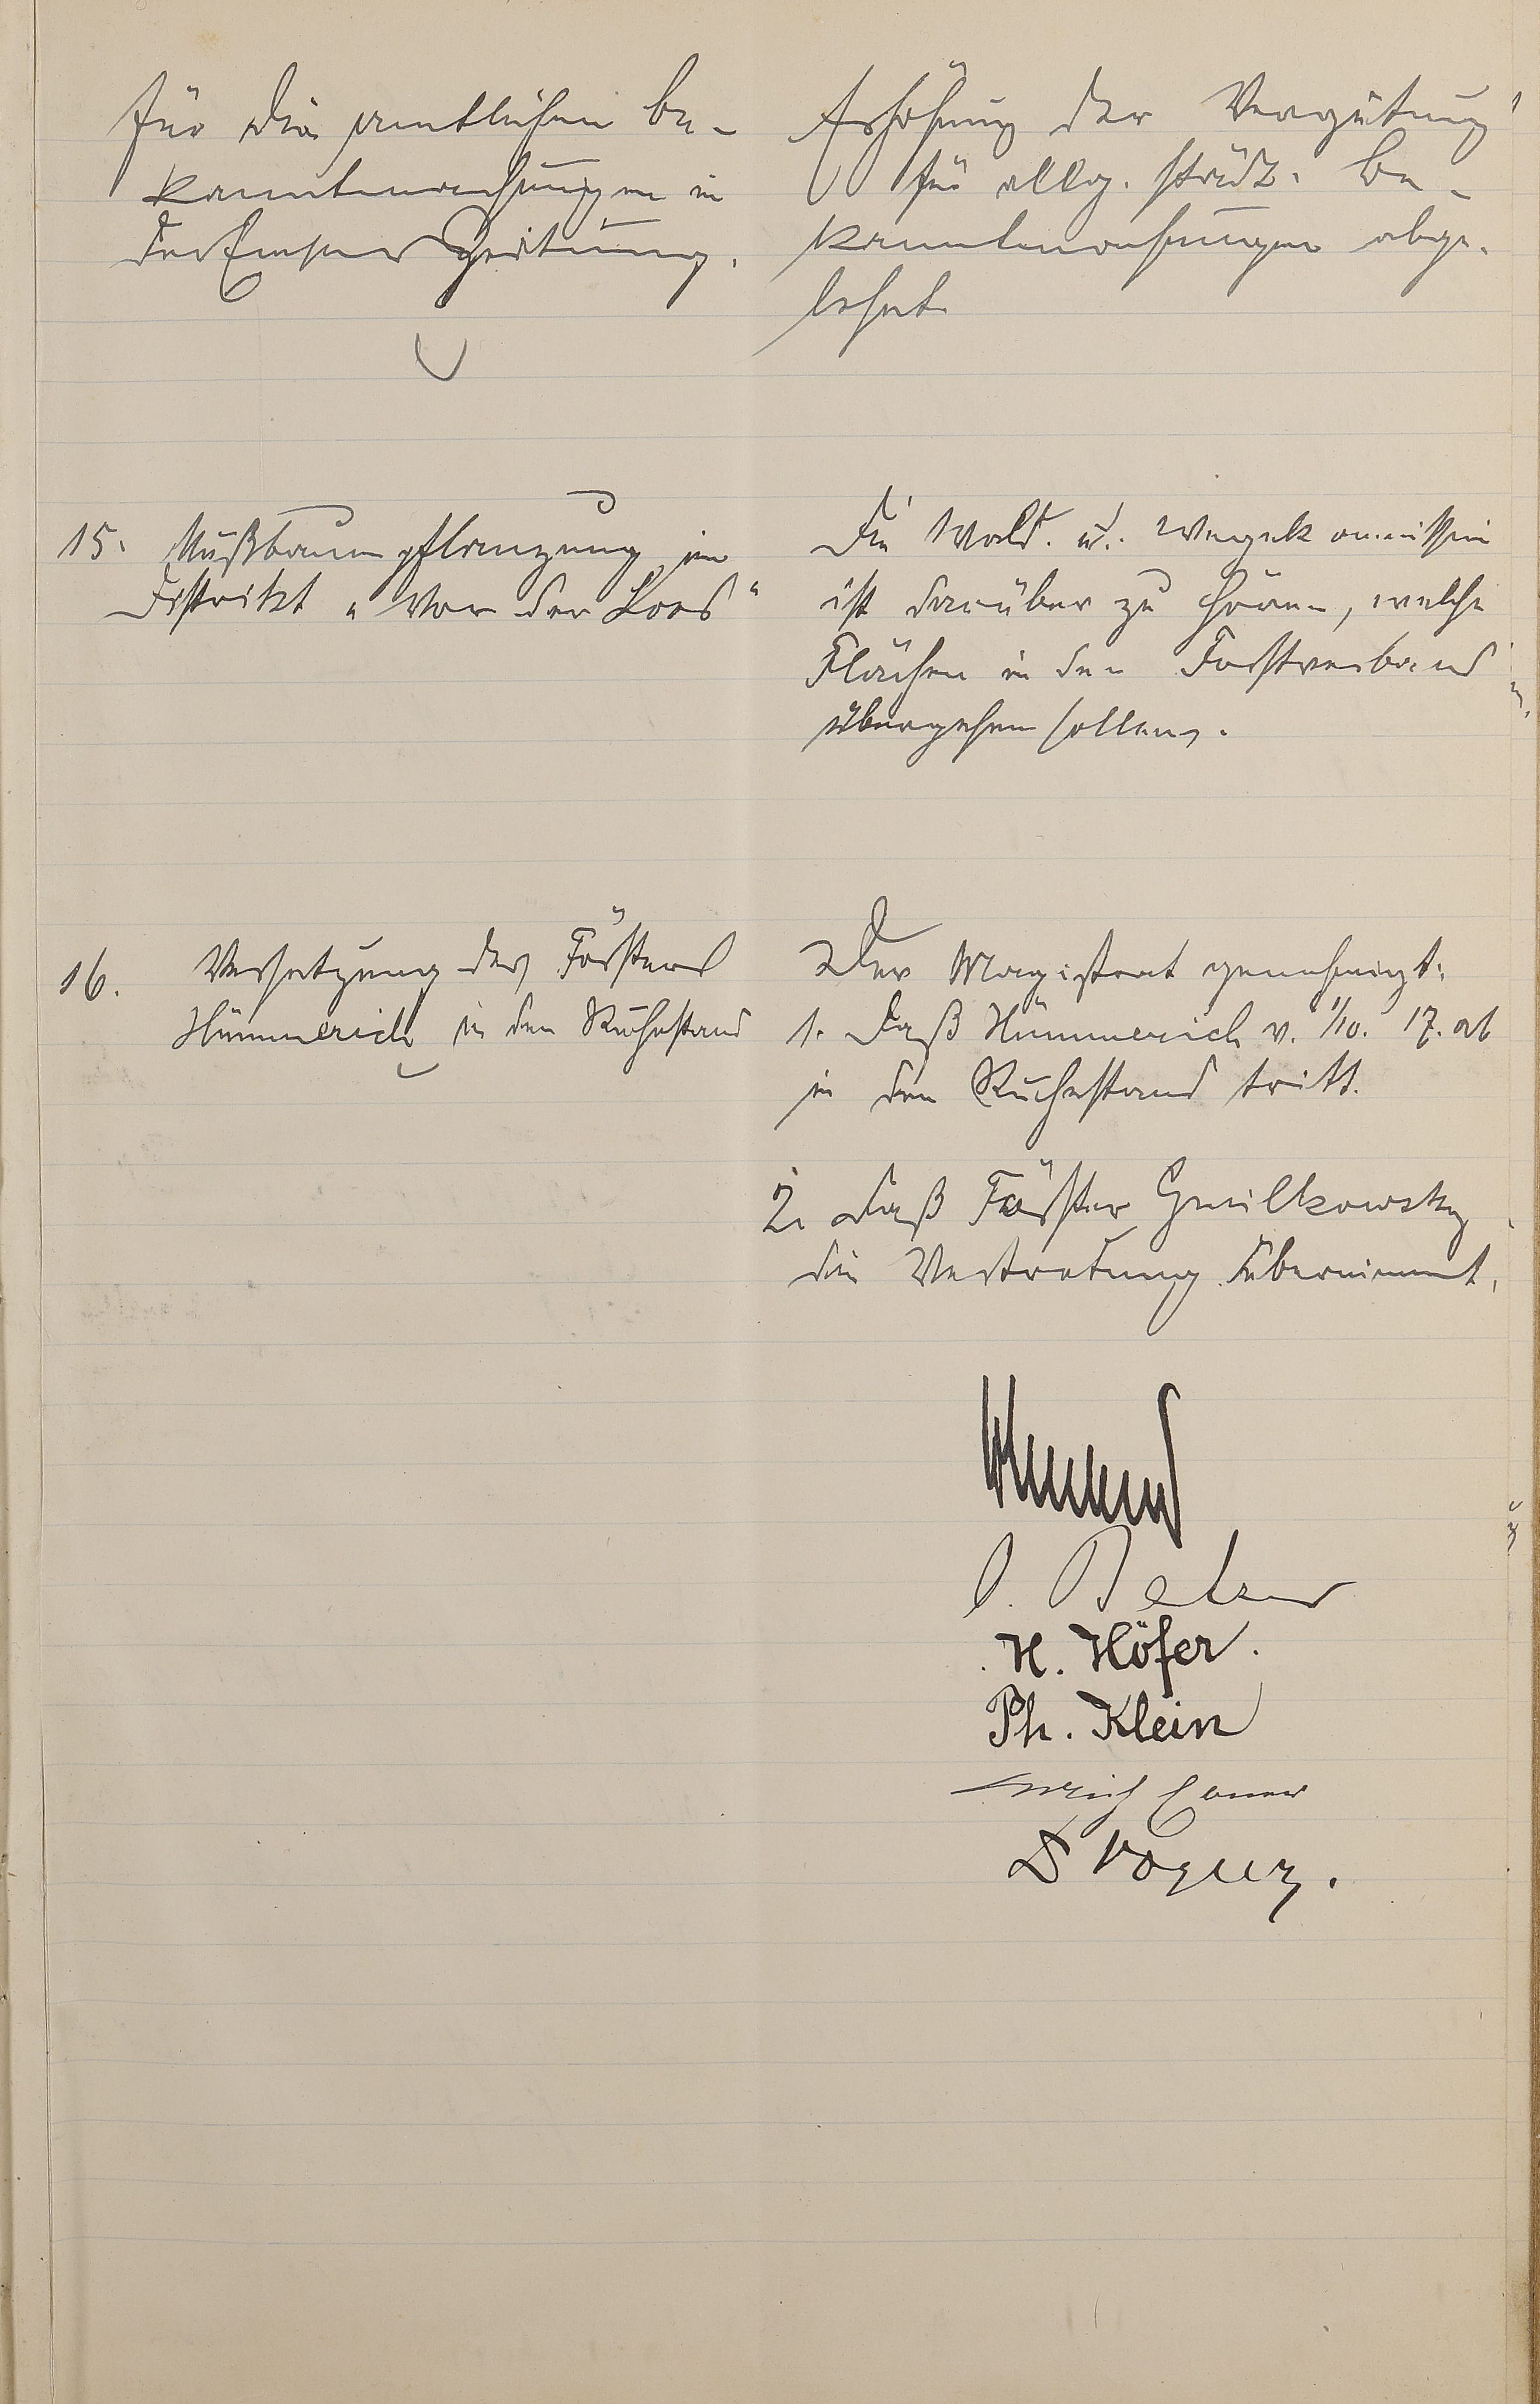 für die amtlichen Be-
kanntmachungen in
der Emser Zeitung.
Erhöhung der Vergütung
für allg. städt. Be-
kanntmachungen abge-
lehnt
15. Nußbaumpflanzung im
Distrikt „Vor der Loos"
Die Wald. u. Wegekommission
ist darüber zu hören, welche
Flächen in den Forstverband
übergehen sollen.
16. Versetzung des Försters
Hümmerich in den Ruhestand
Der Magistrat genehmigt:
1. daß Hümmerich v. 1/10. 17. ab
in den Ruhestand tritt.
2. daß Förster Gwilkowsky
die Vertretung übernimmt.
H. Höfer.
Ph. Klein